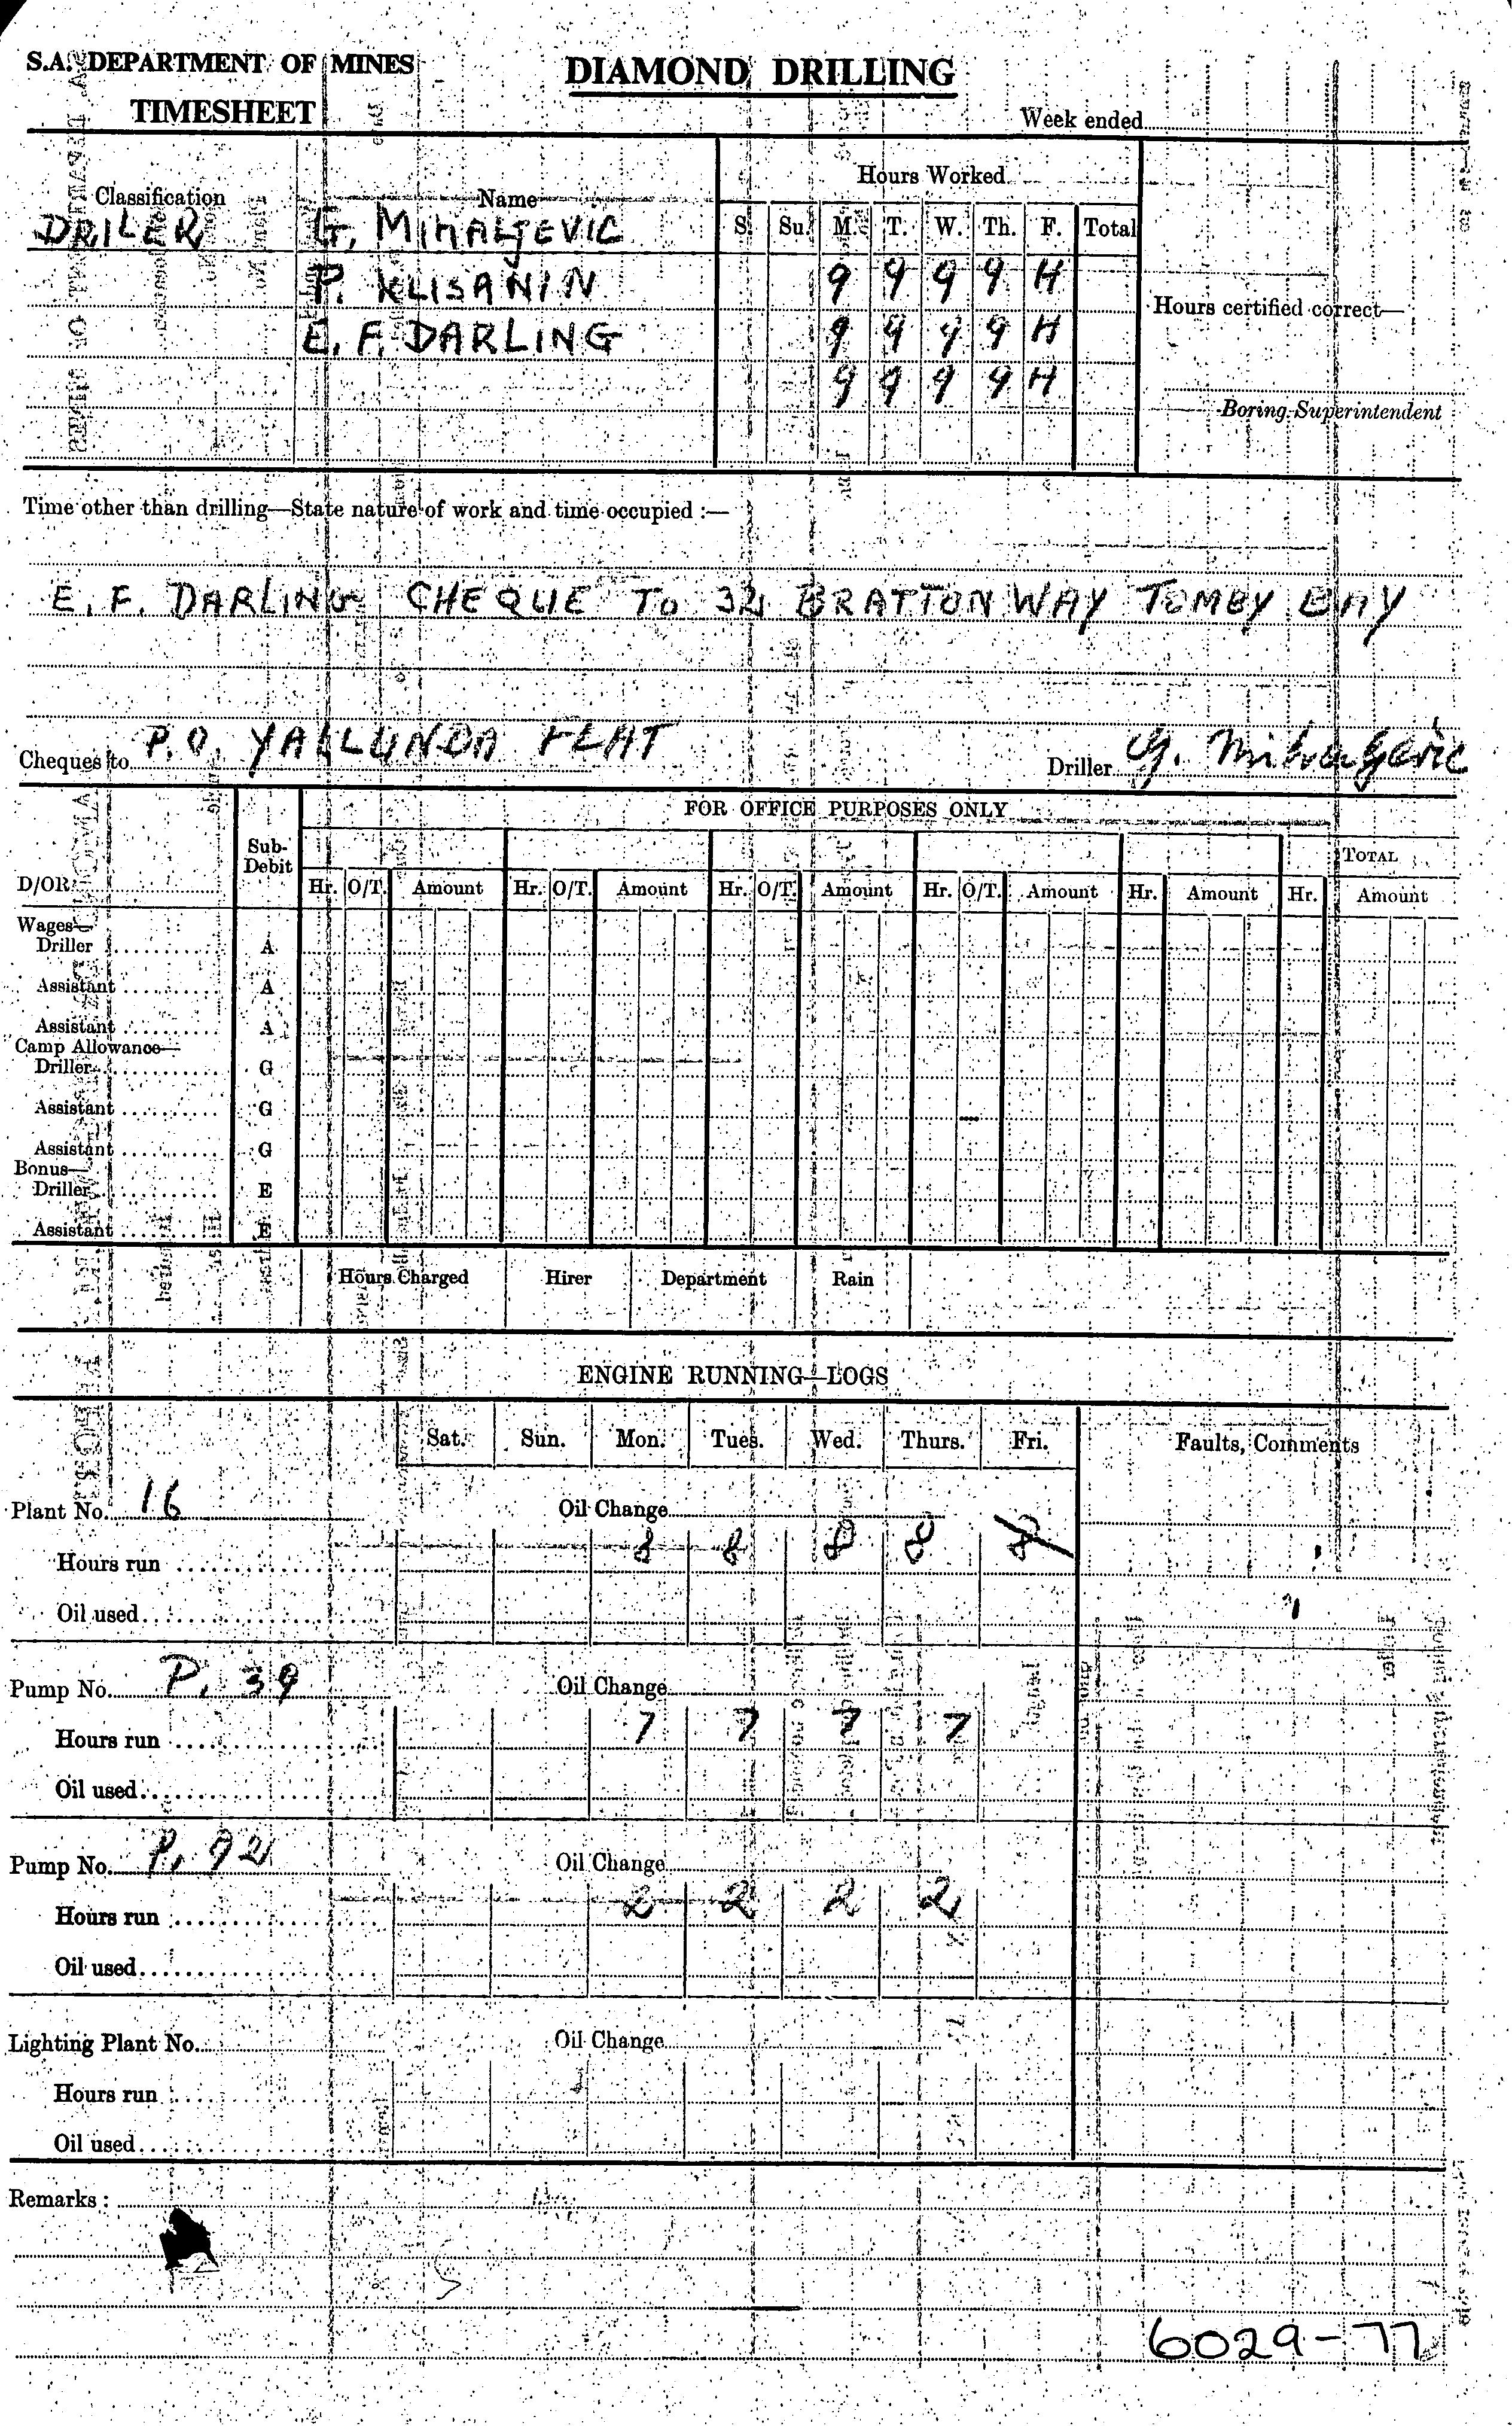 S.A. DEPARTMENT OF MINES
DIAMOND DRILLING
TIMESHEET
Week ended
Classification Name Hours Worked
S. Su. M. T. W. Th. F. Total
DRILER G. MIHALJEVIC
P. KLISANIN 9 9 9 9 H
Hours certified correct—
E. F. DARLING 9 9 9 9 H
9 9 9 9 H
Boring Superintendent
Time other than drilling—State nature of work and time occupied :—
E. F. DARLING CHEQUE TO 32 BRATTON WAY TUMBY BAY
Cheques to P.O. YALLUNDA FLAT Driller G. Mihaljevic
FOR OFFICE PURPOSES ONLY
D/OR Sub-Debit TOTAL
Hr. O/T. Amount Hr. O/T. Amount Hr. O/T. Amount Hr. O/T. Amount Hr. Amount Hr. Amount
Wages—
Driller A
Assistant A
Assistant A
Camp Allowance—
Driller G
Assistant G
Assistant G
Bonus—
Driller E
Assistant E
Hours Charged Hirer Department Rain
ENGINE RUNNING—LOGS
Sat. Sun. Mon. Tues. Wed. Thurs. Fri. Faults, Comments
Plant No. 16 Oil Change
Hours run 8 8 8 8 8
Oil used
Pump No. P. 39 Oil Change
Hours run 7 7 7 7
Oil used
Pump No. P. 92 Oil Change
Hours run 2 2 2 2
Oil used
Lighting Plant No. Oil Change
Hours run
Oil used
Remarks :
6029-77